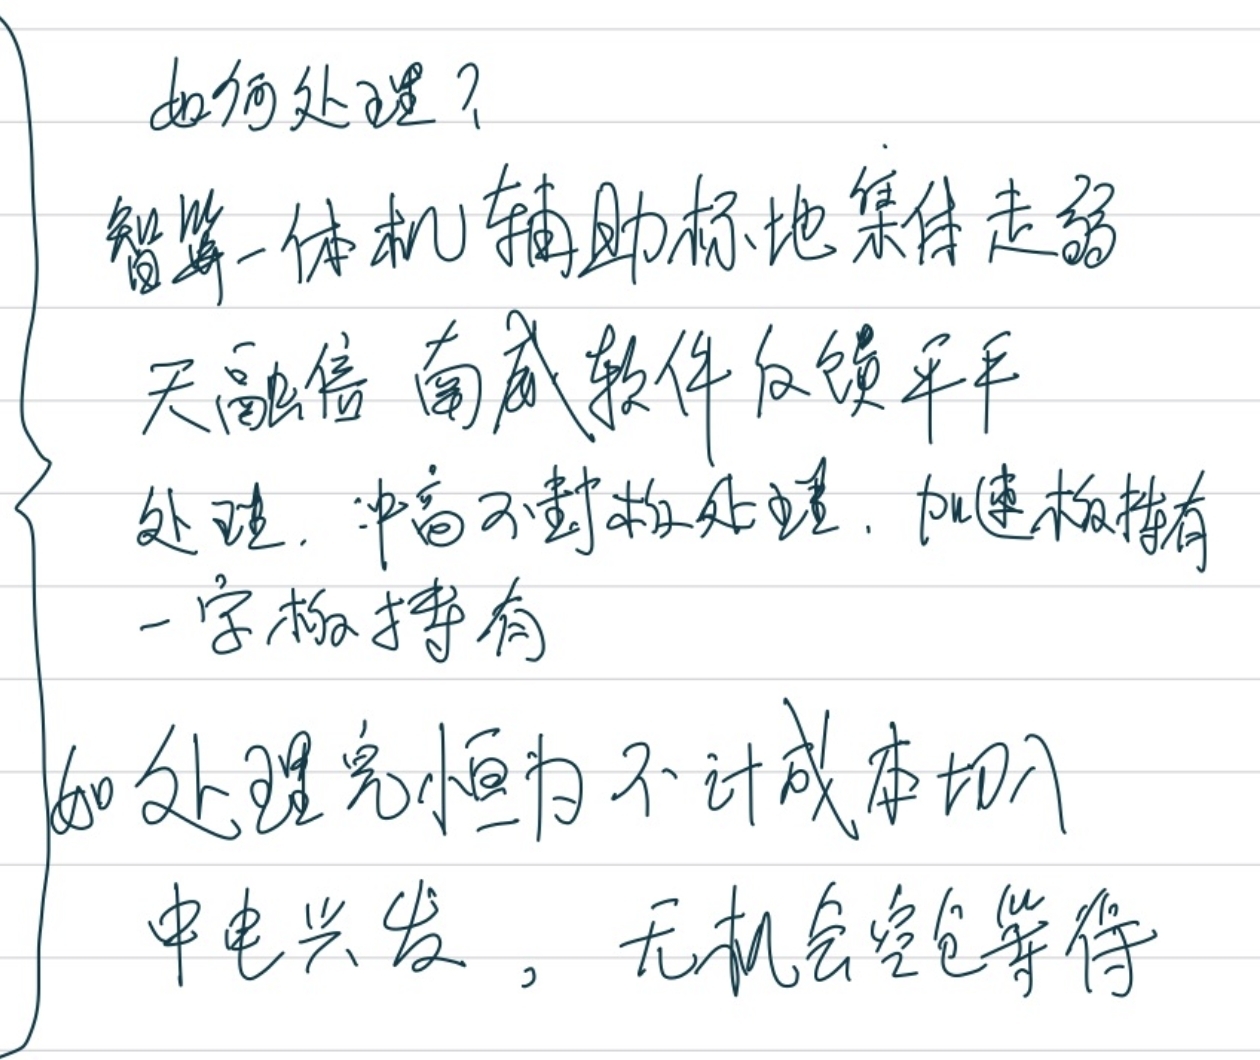 如何处理？
智算一体机辅助标地集体走弱
天融信 南威软件反馈平平
处理. 冲高不封板处理. 加速板持有
一字板持有
如处理完恒为不计成本切入
中电兴发, 无机会空仓等待